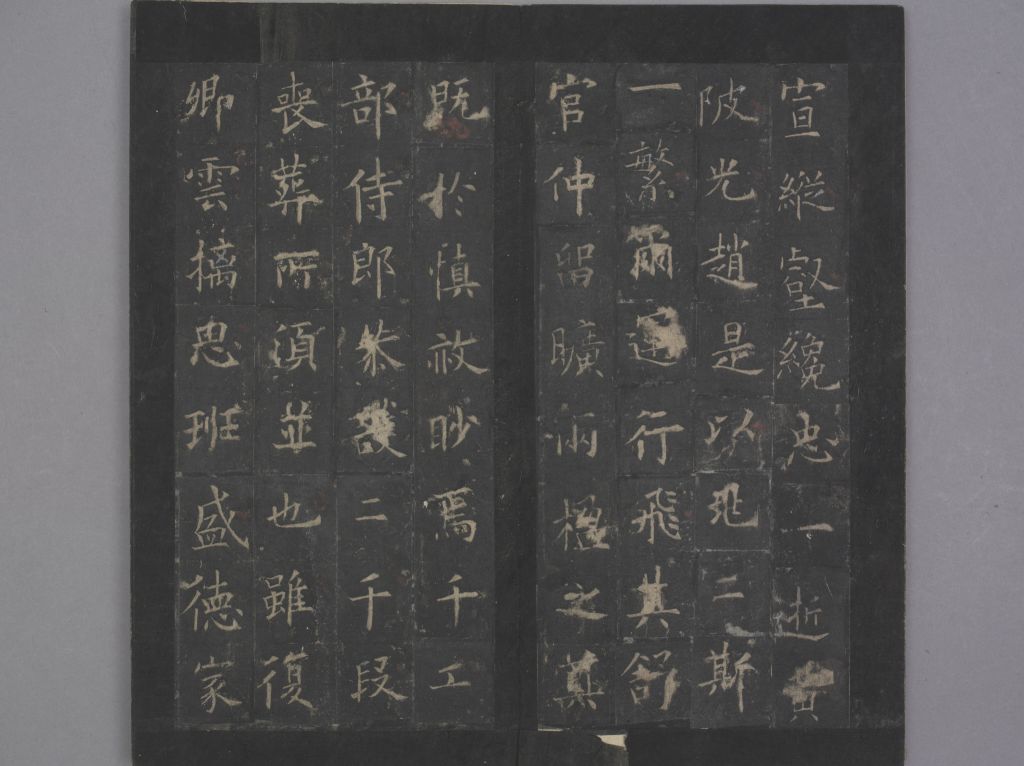 宣縱壑纔忠一逝賓
陂光趙是以思二斯
一繁爾迅行飛其舒
官仲留曠兩楹之奠
既於慎敘眇焉千工
部侍郎恭二千段
喪葬所須並也雖復
卿雲摛思班盛德家